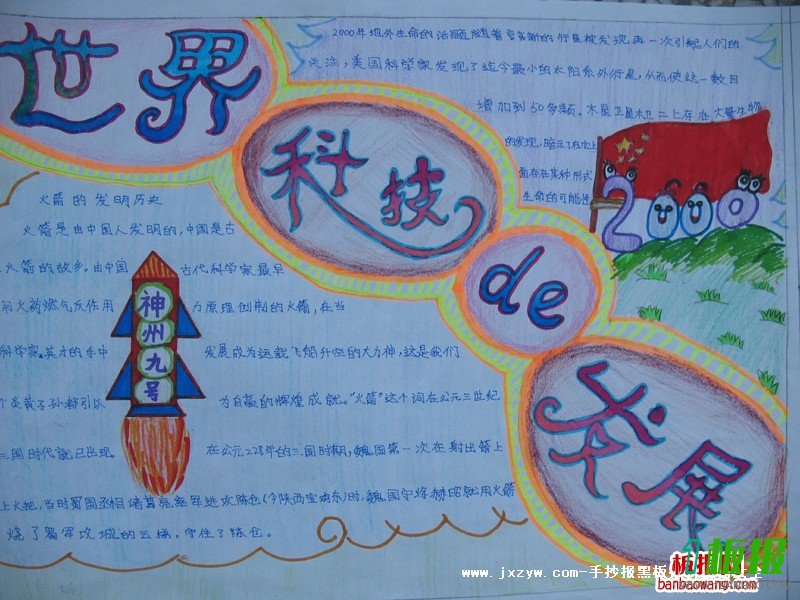 世界
科技
de
发展
2000年地外生命的话题随着
的行星被发现,再一次引起人们的
关注,美国科学家发现了迄今最小的太阳系外行星,从而使这一数目
增加到50多颗。木星卫星木卫二上存在大量生物
的发现,暗示了在它上
面存在某种形式
生命的可能性
2000
火箭的发明历史
火箭是由中国人发明的,中国是古
火箭的故乡。由中国古代科学家最早
用火药燃气反作用力原理创制的火箭,在当
科学家、英才的手中发展成为运载飞船升空的大力神,这是我们
个炎黄子孙都引以为自豪的辉煌成就。"火箭"这个词在公元三世纪
三国时代就已出现。在公元228年的三国时期,魏国第一次在射出箭上
上火把,当时蜀国丞相诸葛亮率军进攻陈仓(今陕西宝鸡东)时,魏国守将郝昭就用火箭
烧了蜀军攻城的云梯,守住了陈仓。
神州九号
www.jxzyw.com-手抄报黑板
板报
banbaowang.com